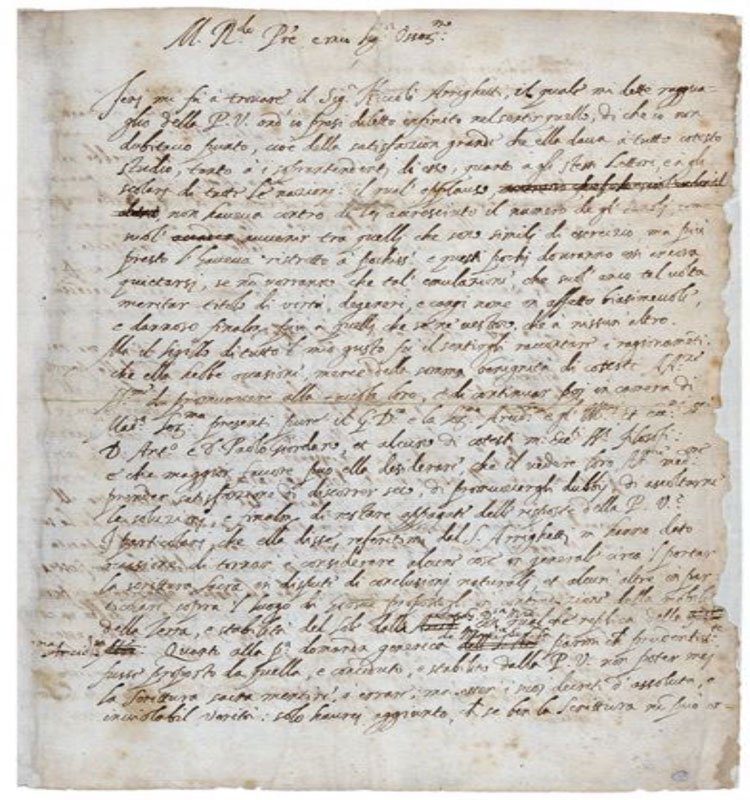 M. R.do Pre e mio Sig.r Oss.mo
Ieri mi fu à trovare il Sig. Niccolò Arrighetti, il quale mi dette raggua-
glio della P. V. ond'io presi diletto infinito nel sentir quello, di che io non
dubitavo punto, cioè della satisfazion grande che ella dava à tutto cotesto
studio, tanto à i soprintendenti di esso, quanto a gli stessi lettori, e a gli
scolari di tutte le nazioni: il qual applauso
non haveva contro di lei accresciuto il numero de gli emoli, come
suol avvenir tra quelli che sono simili di esercizio ma più
presto l'haveva ristretto à pochiss.i e questi pochi dovranno essi ancora
quietarsi, se non vorranno che tal' emulazione, che suol' anco tal volta
meritar titolo di virtù, degeneri, e cangi nome in affetto biasimevole,
e dannoso finalm.te più a quelli che se ne vestono, che à nissun' altro.
Ma il sigillo di tutto il mio gusto fu il sentirgli raccontare i ragionam.ti
che ella hebbe occasione, mercè della somma benignità di coteste AA.
di promuovere alla tavola loro, e di continuar poi in camera di
Mad.a Ser.ma presenti pure il G. D. e la Ser. Arcid.
D. Ant.o e D. Paolo Giordano, et alcuno di cotesti m. Ecc. filosofi:
e che maggior favore può ella desiderare che il vedere loro AA. med.me
prender satisfazione di discorrer seco, di promuovergli dubbii, di ascoltarne
le soluzioni, e finalm. di restare appagate delle risposte della P. V.
I particolari che ella disse referitimi dal S. Arrighetti m' hanno dato
occasione di tornar a considerare alcune cose in generale circa 'l portar
la scrittura sacra in dispute di conclusioni naturali, et alcun' altre in par-
ticolare sopra 'l luogo di Giosuè proposto in contradizione della mobilità
della Terra, e stabilità del Sole dalla qualche replica della
Quanto alla p.a domanda generica parmi che prudentiss.
fusse proposto da quella, e conceduto, e stabilito dalla P. V. non poter mai
la scrittura sacra mentire, o errare: ma esser i suoi decreti d' assoluta, e
inviolabil verità: solo haurei aggiunto, che se ben la scrittura non può er-